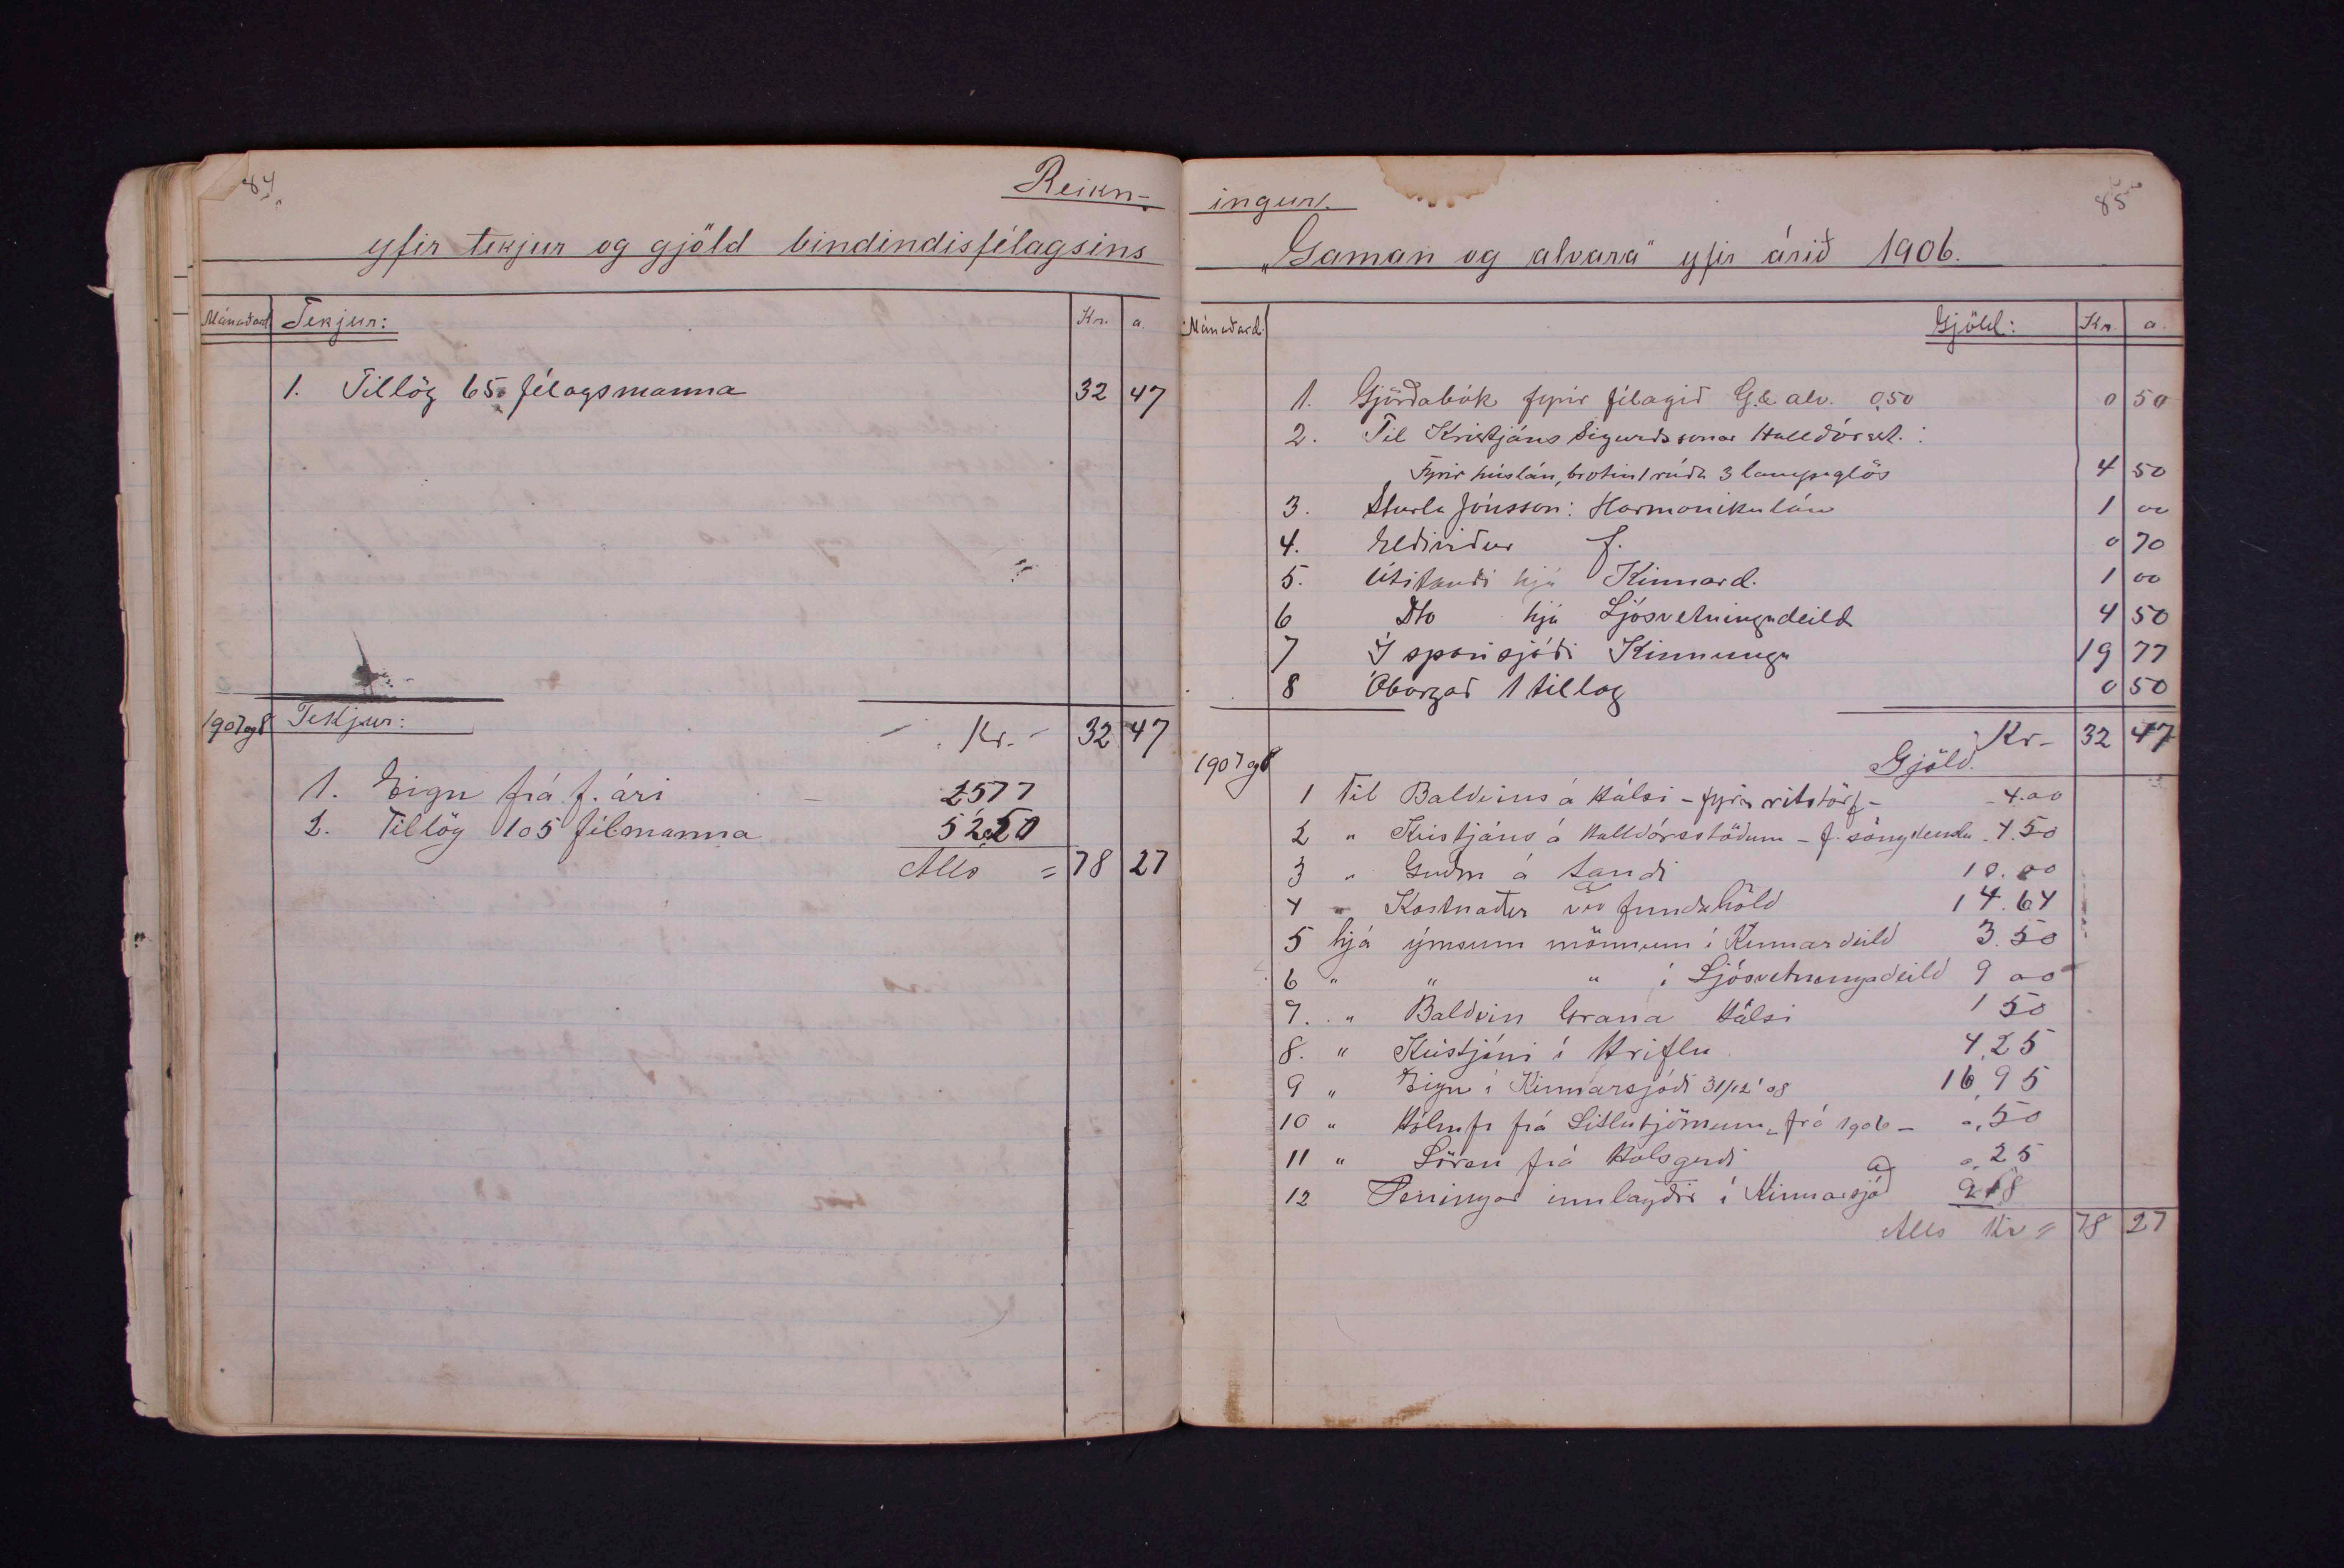 84.
Reikn-
yfir tekjur og gjöld bindindisfélagsins
Mánaðard. Tekjur: Kr. a.
1. Tillög 65 félagsmanna 32 47
Kr. 32 47
1907 og 8 Tekjur:
1. Eign frá f. ári 25 77
2. Tillög 105 félmanna 52 50
Alls = 78 27
85
ingur.
„Gaman og alvara" yfir árið 1906.
Mánaðard. Gjöld: Kr. a.
1. Gjörðabók fyrir félagið G. & alv. 0,50 0 50
2. Til Kristjáns Sigurdssonar Halldórsst.:
Fyrir húslán, brotin 1 rúða 3 lampaglös 4 50
3. Sturla Jónsson: Harmonikulán 1 00
4. Eldiviður f. 0 70
5. Útistandi hjá Kinnard. 1 00
6 Dto hjá Ljósvetningadeild 4 50
7 Í sparisjóði Kinnunga 19 77
8 Óborgað 1 tillag 0 50
Kr- 32 47
1907 og 8 Gjöld.
1 Til Baldvins á Hálsi - fyrir ritstörf - 4.00
2 " Kristjáns á Halldórsstöðum - f. söngkenslu 4.50
3 " Guðm á Sandi 10.00
4 " Kostnaður við fundahöld 14.64
5 hjá ýmsum mönnum í Kinnardeild 3.50
6 " " " í Ljósvetningadeild 9 00
7. " Baldvin Grana Hálsi 1 50
8. " Kristjáni í Hriflu 4,25
9 " Eign í Kinnarsjóði 31/12 '08 16,95
10 " Hólmfr frá Litlutjörnum - frá 1906 - 0,50
11 " Sören frá Hálsgerði 0,25
12 Peningar innlagðir í Kinnarsjóð 9 18
Alls Kr = 78 27